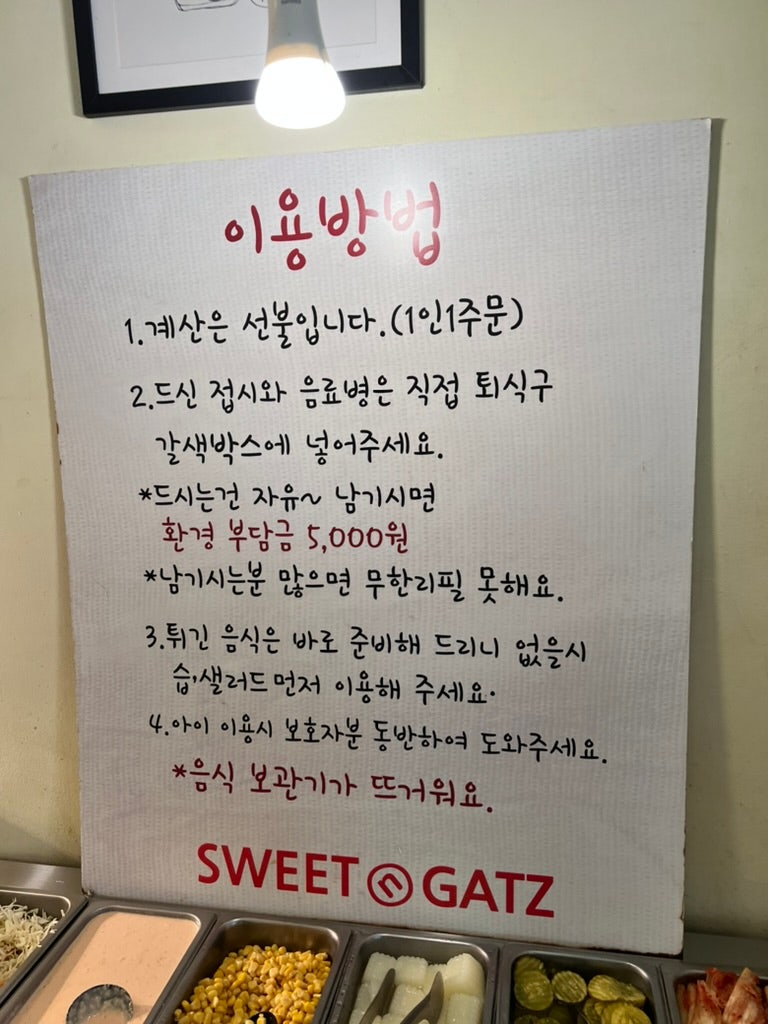 이용방법
1.계산은 선불입니다.(1인1주문)
2.드신 접시와 음료병은 직접 퇴식구
갈색박스에 넣어주세요.
*드시는건 자유~ 남기시면
환경 부담금 5,000원
*남기시는분 많으면 무한리필 못해요.
3.튀긴 음식은 바로 준비해 드리니 없을시
습,샐러드먼저 이용해 주세요.
4.아이 이용시 보호자분 동반하여 도와주세요.
*음식 보관기가 뜨거워요.
SWEET n GATZ